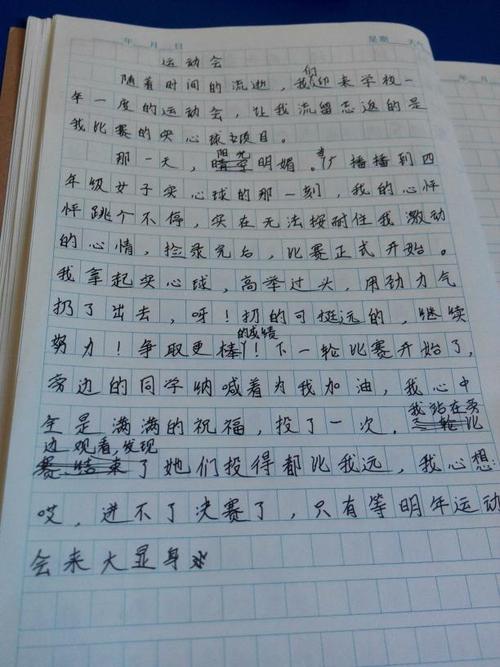 年 月 日 星期 天气
运动会
随着时间的流逝，我们迎来学校一
年一度的运动会，让我流留志返的是
我比赛的实心球项目。
那一天，阳光明媚。当广播播到四
年级女子实心球的那一刻，我的心怦
怦跳个不停，实在无法按耐住我激动
的心情，捡录完后，比赛正式开始。
我拿起实心球，高举过头，用劲力气
扔了出去，呀！扔的可挺远的，继续
努力！争取更棒的成绩！下一轮比赛开始了，
旁边的同学呐喊着为我加油，我心中
全是满满的祝福，投了一次。我站在旁
边观看，发现
了她们投得都比我远，我心想：
哎，进不了决赛了，只有等明年运动
会来大显身